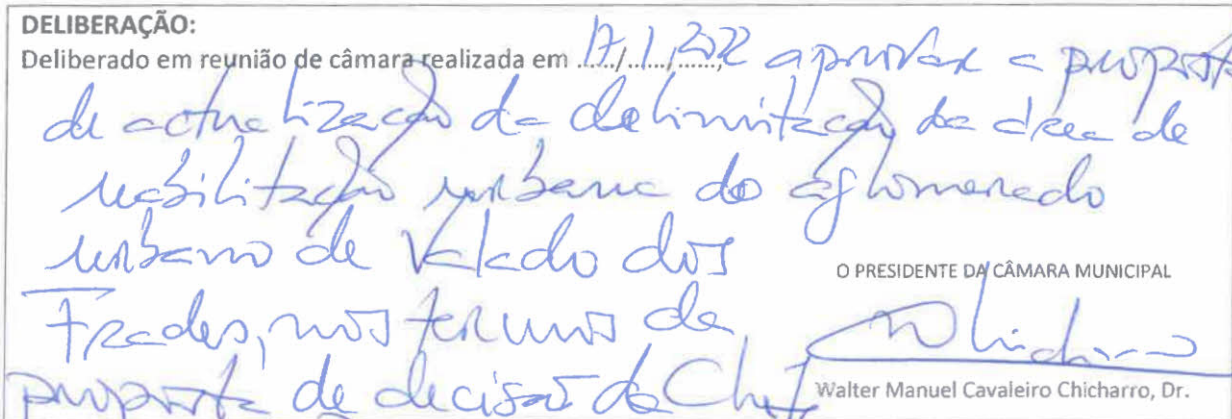 DELIBERAÇÃO:
Deliberado em reunião de câmara realizada em 17/1/2022 aprovar a proposta
de actualização da delimitação da área de
reabilitação urbana do aglomerado
urbano de Valado dos
Frades, nos termos da
proposta de decisão da Chefe
O PRESIDENTE DA CÂMARA MUNICIPAL
Walter Manuel Cavaleiro Chicharro, Dr.